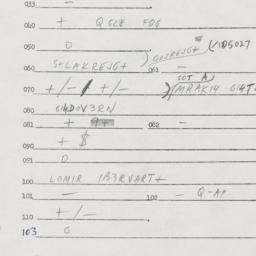 033 —
040 + QGLE FDG
050 0
060 S+LAKREJG+ ) GOJREJG+ (/ID5027
061 —
SOT A
070 +/-/ +/- ) MRAKI4 GI4T
080 GI4DOV3RN
081 + 082 —
090 + $
091 0
100 LOMIR IB3RVART+
101 — 102 — Q-AP
110 +/-
103 0